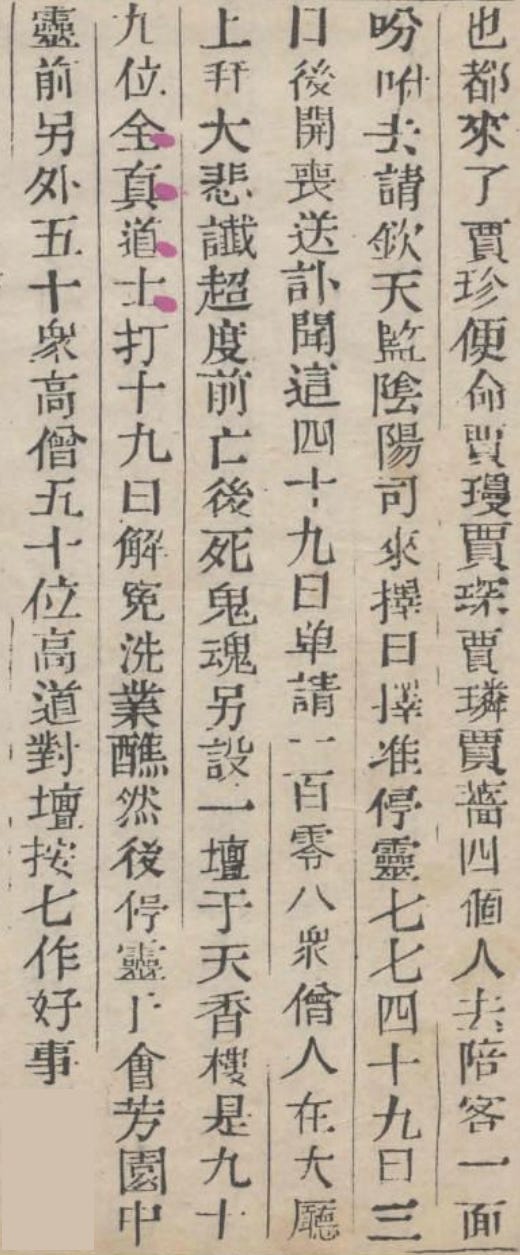 也都來了賈珍便命賈㻴賈琛賈璘賈薔四個人去陪客一面
吩咐去請欽天監陰陽司來擇日擇准停靈七七四十九日三
日後開喪送訃聞這四十九日单請一百零八衆僧人在大廳
上拜大悲讖超度前亡後死鬼魂另設一壇于天香樓是九十
九位全真道士打十九日解寃洗業醮然後停靈于會芳園中
靈前另外五十衆高僧五十位高道對壇按七作好事